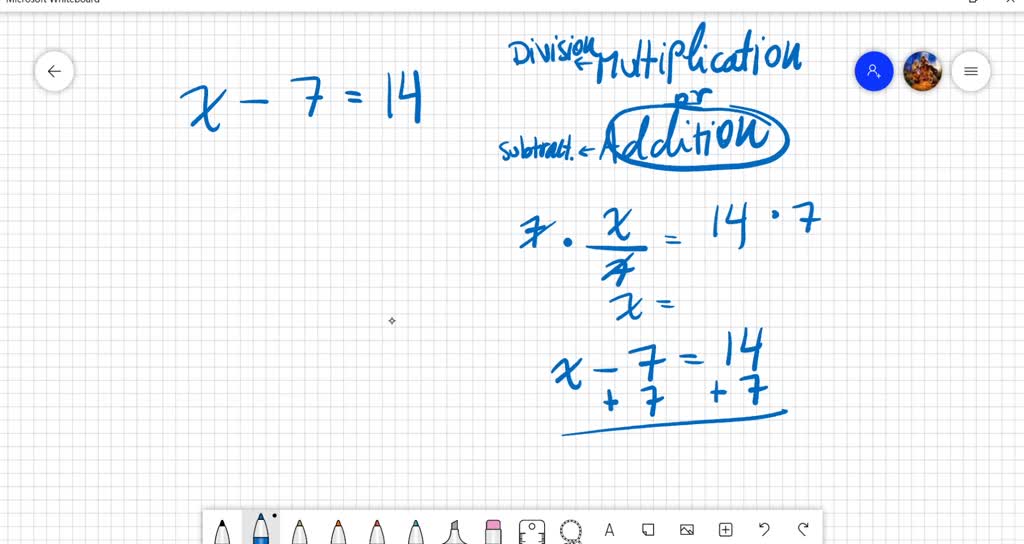 Microsoft Whiteboard
x - 7 = 14
Division ← Multiplication
or
subtract. ← Addition
7 · x/7 = 14 · 7
x =
x - 7 = 14
+ 7 + 7
A